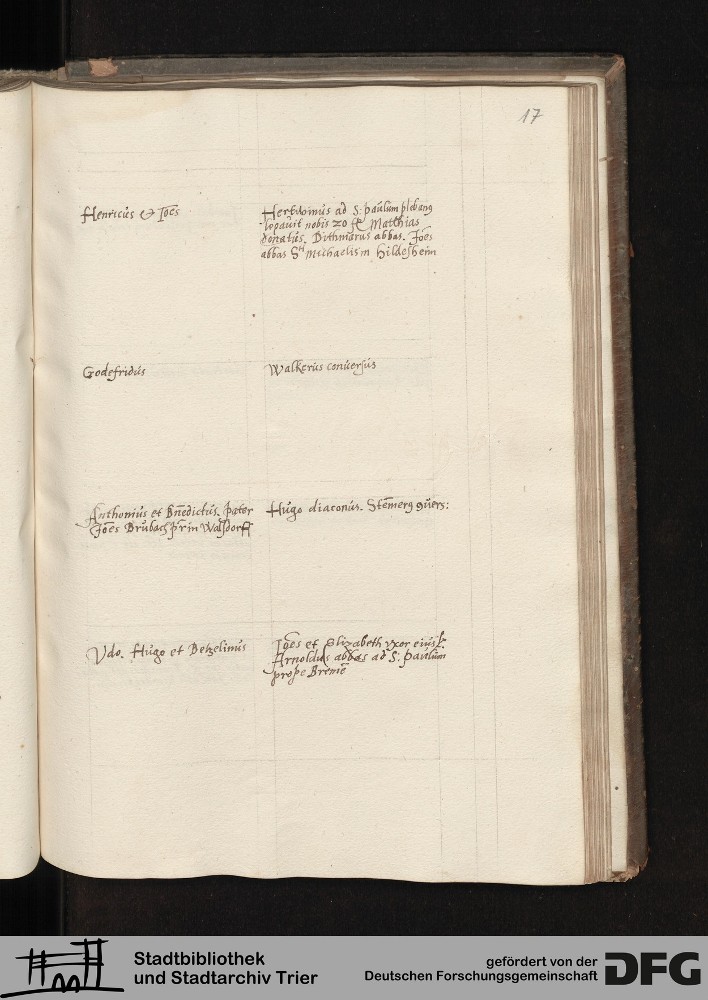 17
Henricus et Joēs
Hertwinus ad S: paulum plebanꝯ
nobis 20 fl. Matthias
donatus. Dithmarus abbas. Joēs
abbas Sti Michaelis in Hildesheim
Godefridus
Walkerus conversus
Anthonius et Bn̄edictus. pater
Joēs Brubach pr̄ in Walsdorff
Hugo diaconus. Stēmerꝯ ꝯvers:
Vdo. Hugo et Betzelinus
Joēs et Elizabeth vxor eius
Arnoldus abbas ad S: paulum
prope Bremē
Stadtbibliothek
und Stadtarchiv Trier
gefördert von der
Deutschen Forschungsgemeinschaft
DFG